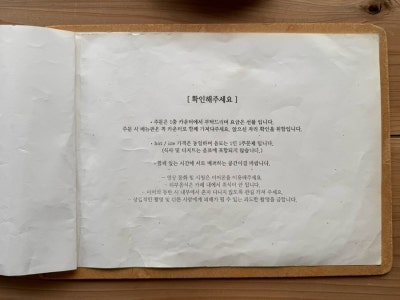 [ 확인해주세요 ]
- 주문은 1층 카운터에서 부탁드리며 요금은 선불 입니다.
주문 시 메뉴판은 꼭 카운터로 함께 가져다주세요. 앉으신 자리 확인을 위함입니다.
- hot / ice 가격은 동일하며 음료는 1인 1주문제 입니다.
(식사 및 디저트는 음료에 포함되지 않습니다.)
- 함께 있는 시간에 서로 배려하는 공간이길 바랍니다.
- 영상 통화 및 시청은 이어폰을 이용해주세요.
- 외부음식은 카페 내에서 취식이 안 됩니다.
- 아이의 동반 시 내부에서 혼자 다니지 않도록 관심 가져 주세요.
- 상업적인 촬영 및 다른 사람에게 피해가 될 수 있는 과도한 촬영을 금합니다.